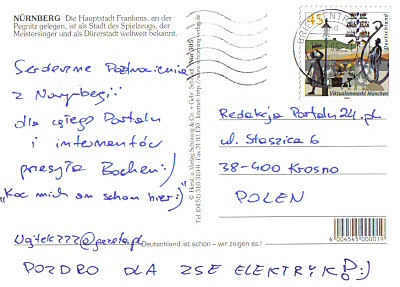 NÜRNBERG Die Hauptstadt Frankens, an der
Pegnitz gelegen, ist als Stadt des Spielzeugs, der
Meistersinger und als Dürerstadt weltweit bekannt.
Serdeczne Pozdrowienia
z Nurybergii
dla całego Portalu
i internautów
przesyła Bochen:)
"Koc mich an schon hier:)"
Wojtek777@gazeta.pl
Deutschland ist schön – wir zeigen es!
POZDRO DLA ZSE ELEKTRYK!:)
© Horst u. Verlag Schöning & Co. + Gebr. Schmidt
45
Deutschland
Viktualienmarkt München
BRIEFZENTRUM
Redakcja Portalu24.pl
ul. Staszica 6
38-400 Krosno
POLEN
4 004545 000019